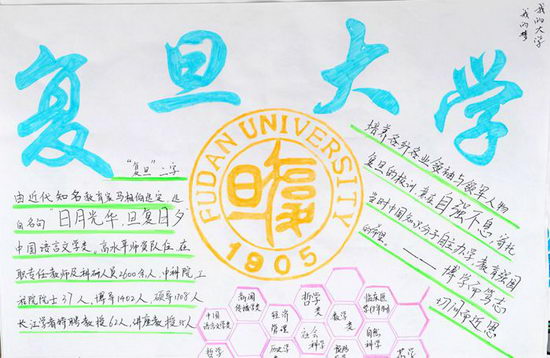 我的大学
我的梦
复旦大学
"复旦"二字
由近代知名教育家马相伯选定,选
自名句"日月光华,旦复旦兮"
中国语言文学类,高水平师资队伍,在
职专任教师及科研人员2600余人,中科院工
程院院士37人,博导1402人,硕导1708人
长江学者特聘教授62人,讲座教授
FUDAN UNIVERSITY
1905
培养各行各业领袖与领军人物
复旦的校训 来自自强不息,寄托
当时中国知识分子自主办学教育强国
的希望
——博学而笃志
切问而近思
新闻
传播学类
中国
语言文学类
哲学
经济
管理
历史学
哲学
类
社会
科学
数学
类
临床医
学(八年制)
自然
科学